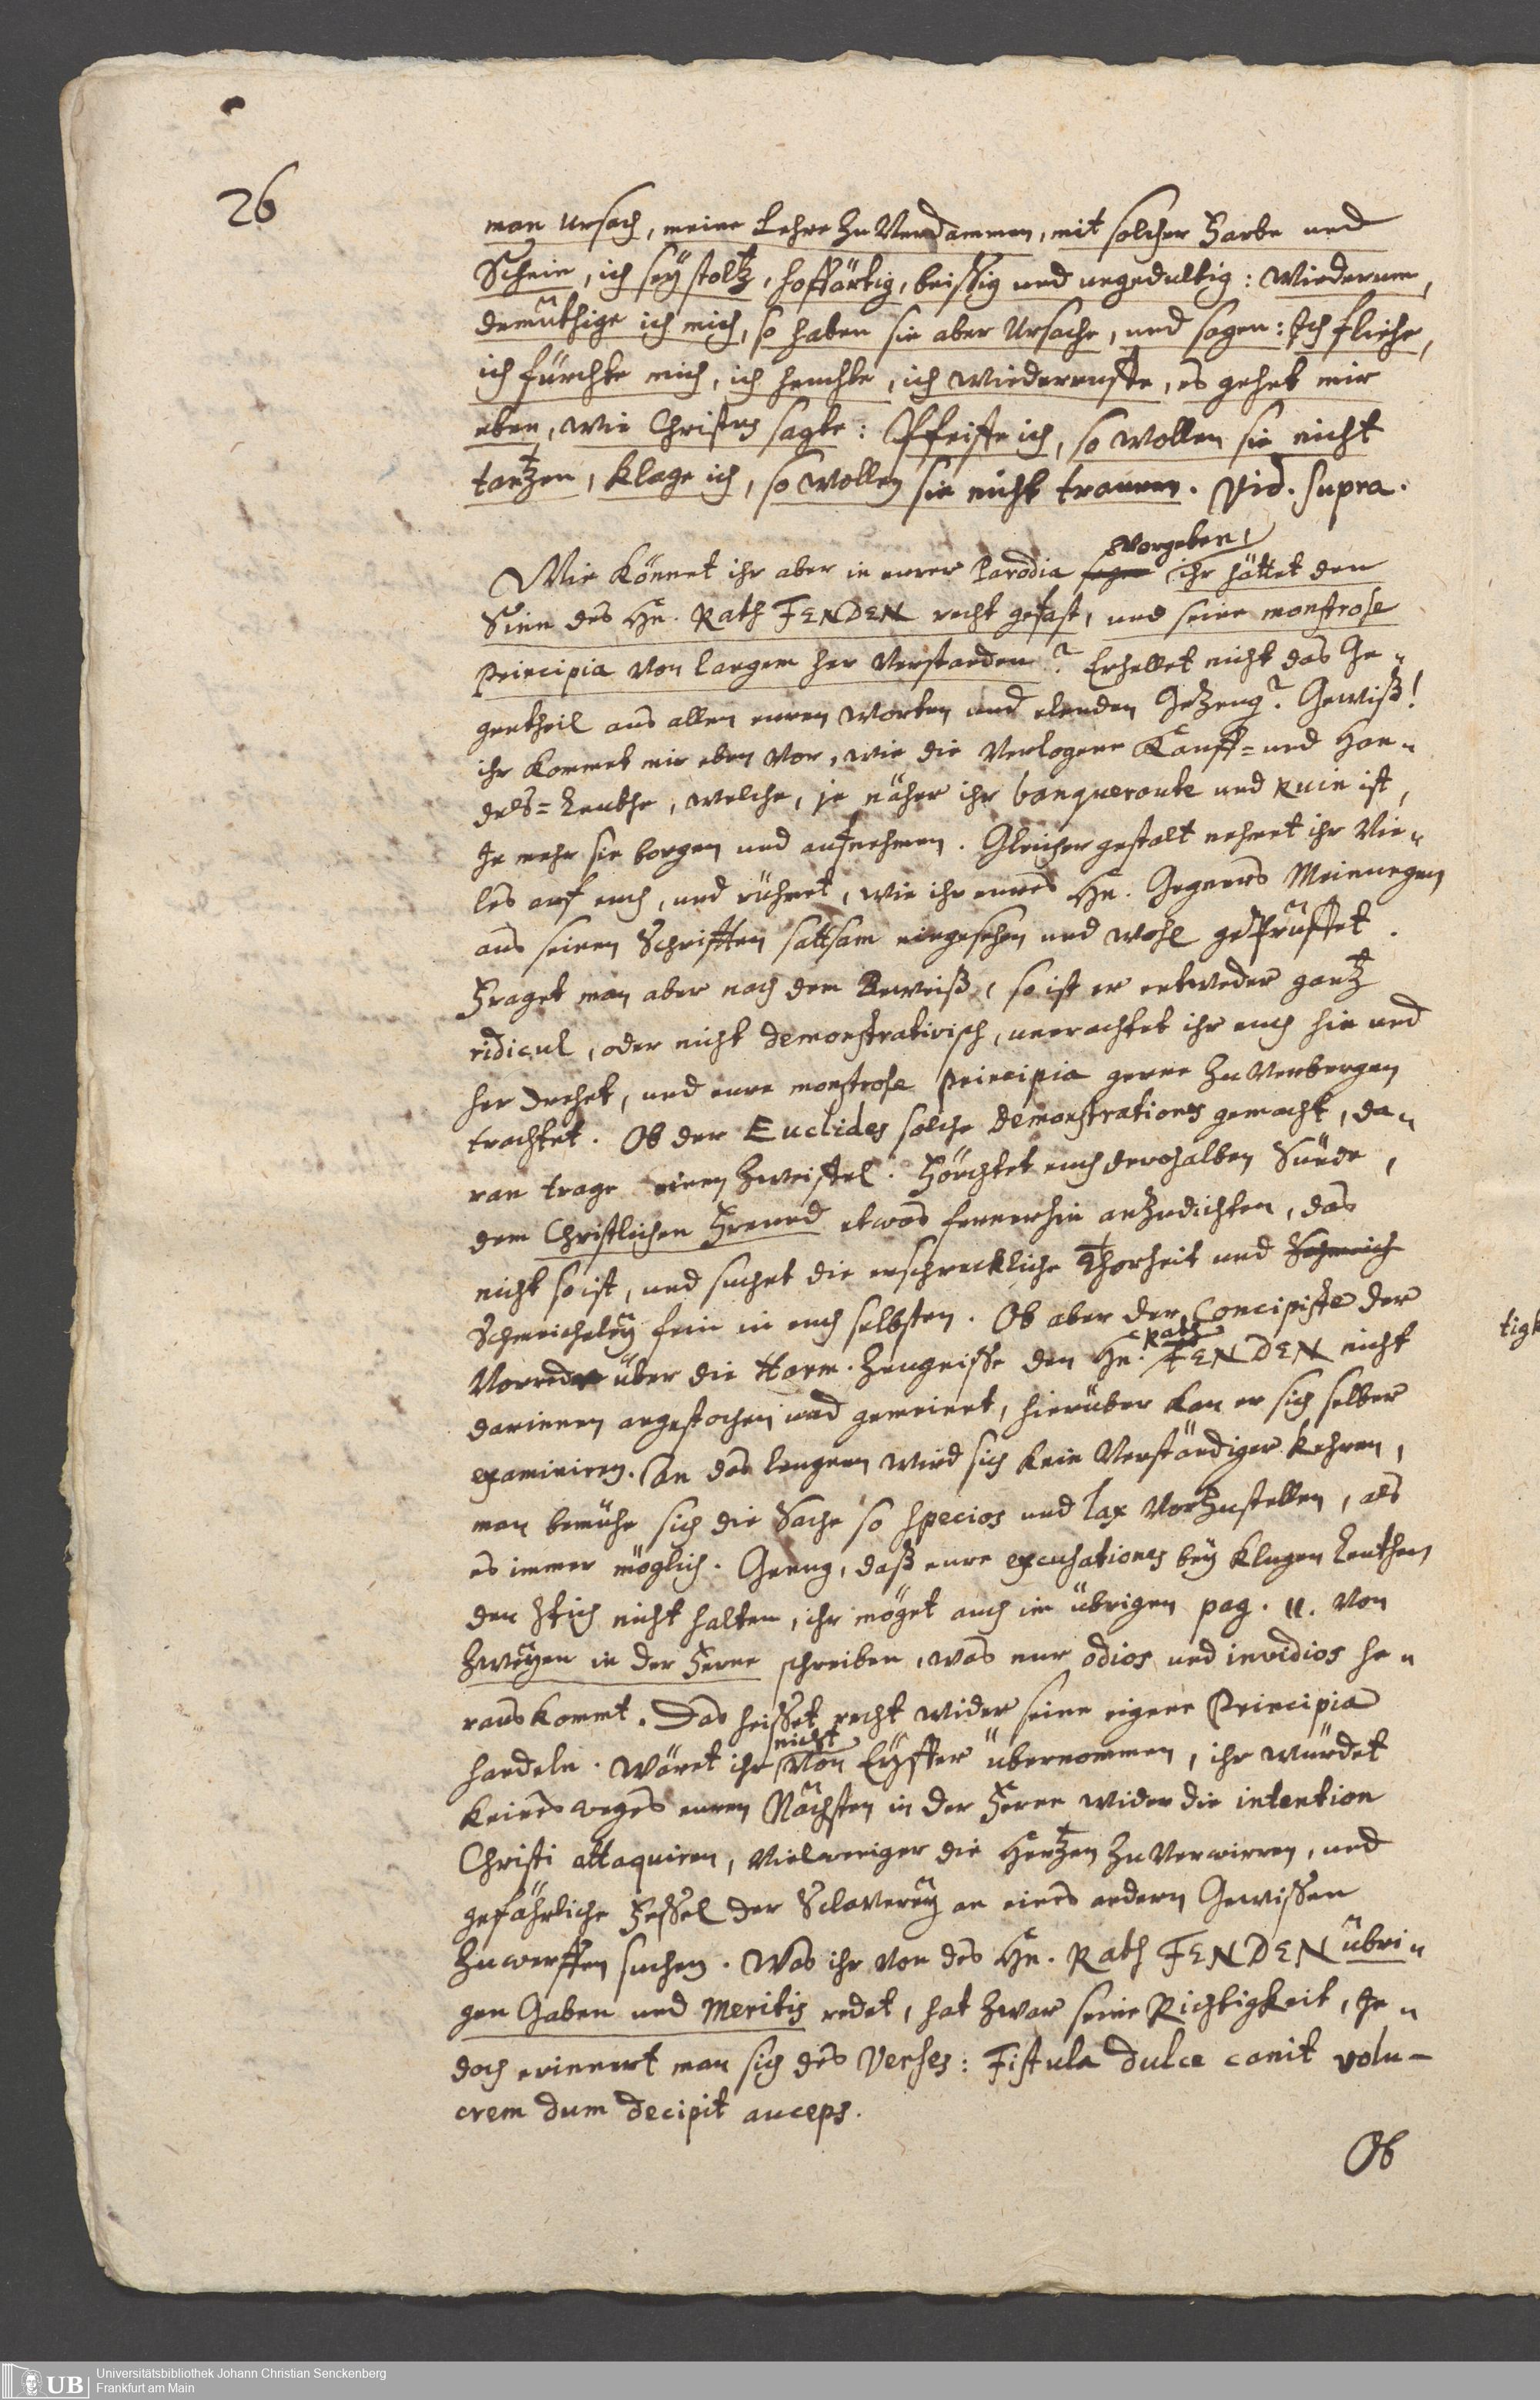 26
man Ursach, meine Lehre zu Verdammen, mit solcher Farbe und
Schein, ich seÿ stoltz, hoffärtig, beissig und ungedultig: Wiederum,
demüthige ich mich, so haben sie aber Ursache, und sagen: Ich fliehe,
ich fürchte mich, ich heuchle, ich wiederruffe, es gehet mir
eben, wie Christus sagte: Pfeiffe ich, so wollen sie nicht
tantzen, klage ich, so wollen sie nicht trauren. Vid. supra.
Wie könnet ihr aber in eurer Parodia sagen vorgeben, ihr hättet den
Sinn des Hn. Rath FENDEN recht gefast, und seine monstrose
Principia von langem her verstanden? Erhellet nicht das Ge-
gentheil aus allen euren Worten und elenden Gezeug? Gewiß!
ihr kommet mir eben vor, wie die verlogene Kauff= und Han-
dels=Leuthe, welche, je näher ihr banqueroute und Ruin ist,
Je mehr sie borgen und aufnehmen. Gleicher gestalt nehmet ihr Vie-
les auf euch, und rühmet, wie ihr eures Hn. Gegners Meinungen
aus seinen Schrifften sattsam eingesehen und wohl geprüffet.
Fraget man aber nach dem Beweiß, so ist er entweder gantz
ridicul, oder nicht demonstrativisch, unerachtet ihr euch hin und
her drehet, und eure monstrose principia gerne zu verbergen
trachtet. Ob der Euclides solche Demonstrationes gemacht, da-
ran trage einen Zweiffel. Förchtet euch derohalben Sünde,
dem Christlichen Freund etwas fernerhin anzudichten, das
nicht so ist, und suchet die erschreckliche Thorheit und Schmeich
Schmeicheleÿ fein in euch selbsten. Ob aber der Concipiste der
Vorrede über die Harm. Zeugnisse den Hn. Rath FENDEN nicht
darinnen angestochen und gemeinet, hierüber kan er sich selber
examiniren. An das leugnen wird sich kein Verständiger kehren,
man bemühe sich die Sache so specios und lax vorzustellen, als
es immer möglich. Genug, daß eure excusationes beÿ klugen Leuthen
den Stich nicht halten, ihr möget auch im übrigen pag. 11. von
Zweÿen in der Ferne schreiben, was nur odios und invidios he-
raus kommt. Das heisset recht wider seine eigene Principia
handeln. Wäret ihr nicht von Eÿffer übernommen, ihr würdet
keines weges euren Nächsten in der Ferne wider die intention
Christi attaquiren, vielweniger die Hertzen zu verwirren, und
gefährliche Fessel der Sclavereÿ an eines andern Gewissen
zu werffen suchen. Was ihr von des Hn. Rath FENDEN übri-
gen Gaben und Meritis redet, hat zwar seine Richtigkeit, Je-
doch erinnert man sich des Verses: Fistula dulce canit volu-
crem dum decipit auceps.
Ob
tigk
UB
Universitätsbibliothek Johann Christian Senckenberg
Frankfurt am Main